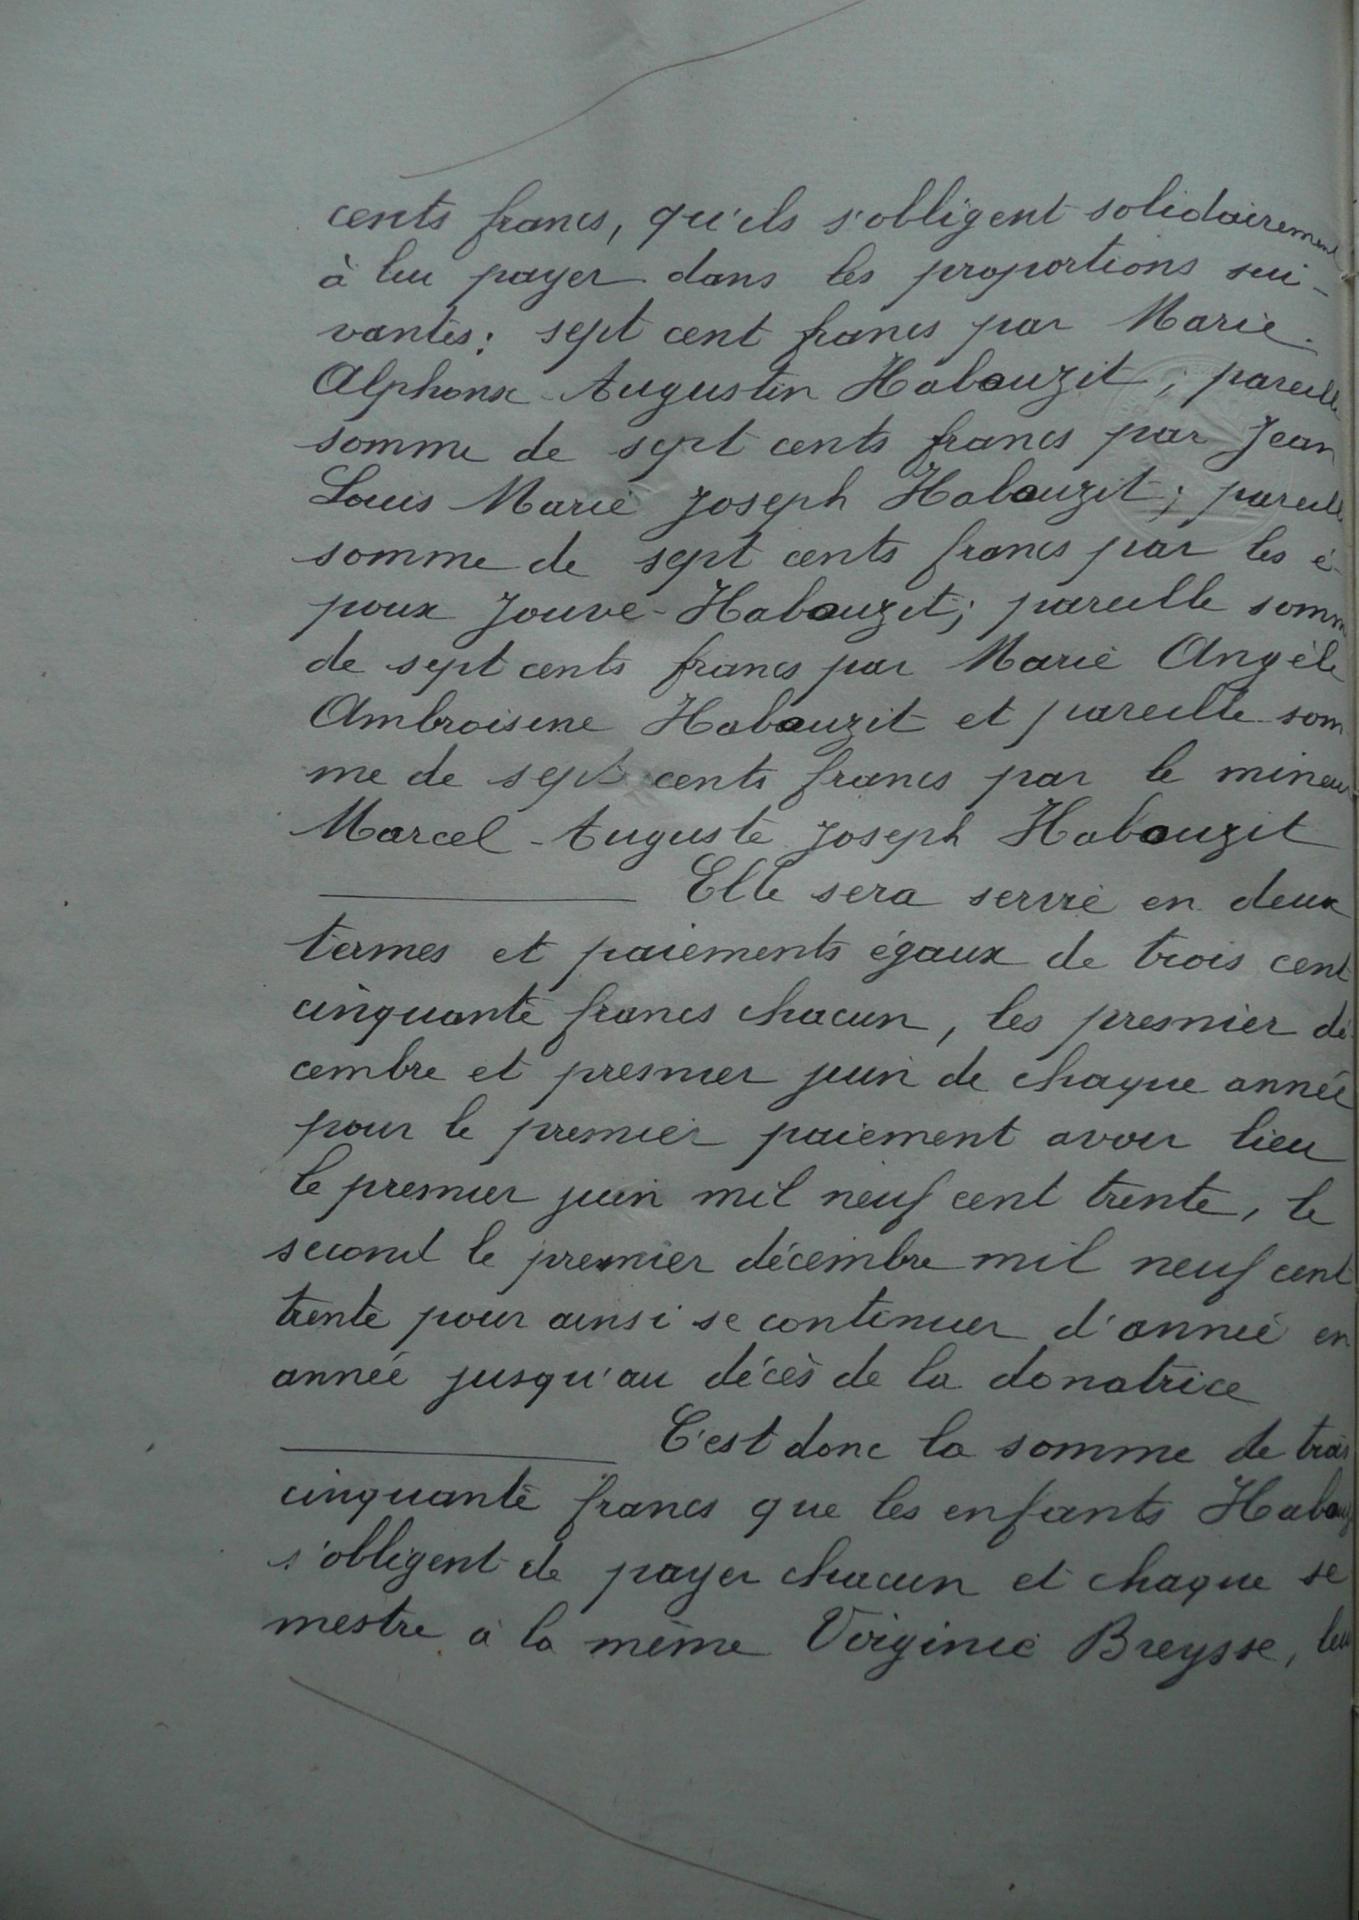 cents francs, qu'ils s'obligent solidairement
à lui payer dans les proportions sui-
vantes: sept cent francs par Marie
Alphonse Augustin Habouzit; pareille
somme de sept cents francs par Jean
Louis Marie Joseph Habouzit; pareille
somme de sept cents francs par les é-
poux Jouve-Habouzit; pareille somm
de sept cents francs par Marie Angèle
Ambroisine Habouzit et pareille som
me de sept cents francs par le mineur
Marcel Auguste Joseph Habouzit
Elle sera servie en deux
termes et paiements égaux de trois cent
cinquante francs chacun, les premier dé
cembre et premier juin de chaque année
pour le premier paiement avoir lieu
le premier juin mil neuf cent trente, le
second le premier décembre mil neuf cent
trente pour ainsi se continuer d'année en
année jusqu'au décès de la donatrice
C'est donc la somme de trois
cinquante francs que les enfants Habouz
s'obligent de payer chacun et chaque se
mestre à la même Virginie Breysse, leur